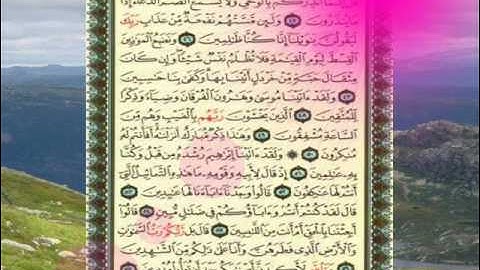 قُلْ إِنَّمَآ أُنذِرُكُم بِٱلْوَحْىِ وَلَا يَسْمَعُ ٱلصُّمُّ ٱلدُّعَآءَ إِذَا
مَا يُنذَرُونَ ٤٥ وَلَئِن مَّسَّتْهُمْ نَفْحَةٌ مِّنْ عَذَابِ رَبِّكَ
لَيَقُولُنَّ يَٰوَيْلَنَآ إِنَّا كُنَّا ظَٰلِمِينَ ٤٦ وَنَضَعُ ٱلْمَوَٰزِينَ
ٱلْقِسْطَ لِيَوْمِ ٱلْقِيَٰمَةِ فَلَا تُظْلَمُ نَفْسٌ شَيْـًٔا وَإِن كَانَ
مِثْقَالَ حَبَّةٍ مِّنْ خَرْدَلٍ أَتَيْنَا بِهَا وَكَفَىٰ بِنَا حَٰسِبِينَ
٤٧ وَلَقَدْ ءَاتَيْنَا مُوسَىٰ وَهَٰرُونَ ٱلْفُرْقَانَ وَضِيَآءً وَذِكْرًا
لِّلْمُتَّقِينَ ٤٨ ٱلَّذِينَ يَخْشَوْنَ رَبَّهُم بِٱلْغَيْبِ وَهُم مِّنَ
ٱلسَّاعَةِ مُشْفِقُونَ ٤٩ وَهَٰذَا ذِكْرٌ مُّبَارَكٌ أَنزَلْنَٰهُ أَفَأَنتُمْ لَهُۥ
مُنكِرُونَ ٥٠ ۞ وَلَقَدْ ءَاتَيْنَآ إِبْرَٰهِيمَ رُشْدَهُۥ مِن قَبْلُ وَكُنَّا
بِهِۦ عَٰلِمِينَ ٥١ إِذْ قَالَ لِأَبِيهِ وَقَوْمِهِۦ مَا هَٰذِهِ ٱلتَّمَاثِيلُ ٱلَّتِىٓ
أَنتُمْ لَهَا عَٰكِفُونَ ٥٢ قَالُوا۟ وَجَدْنَآ ءَابَآءَنَا لَهَا عَٰبِدِينَ ٥٣
قَالَ لَقَدْ كُنتُمْ أَنتُمْ وَءَابَآؤُكُمْ فِى ضَلَٰلٍ مُّبِينٍ ٥٤ قَالُوٓا۟
أَجِئْتَنَا بِٱلْحَقِّ أَمْ أَنتَ مِنَ ٱللَّٰعِبِينَ ٥٥ قَالَ بَل رَّبُّكُمْ رَبُّ ٱلسَّمَٰوَٰتِ
وَٱلْأَرْضِ ٱلَّذِى فَطَرَهُنَّ وَأَنَا۠ عَلَىٰ ذَٰلِكُم مِّنَ ٱلشَّٰهِدِينَ